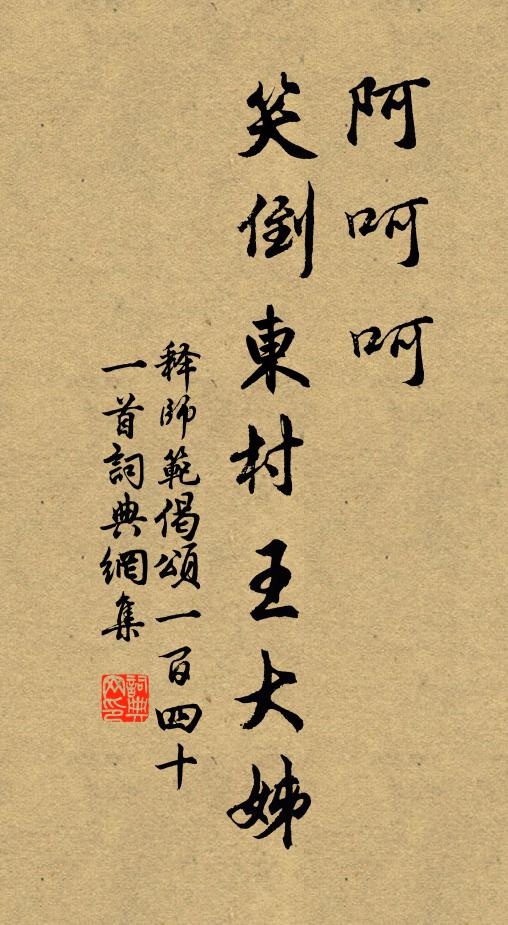 阿呵呵
笑倒東村王大姊
释師範偈頌一百四十
一首詞典網集
詞典